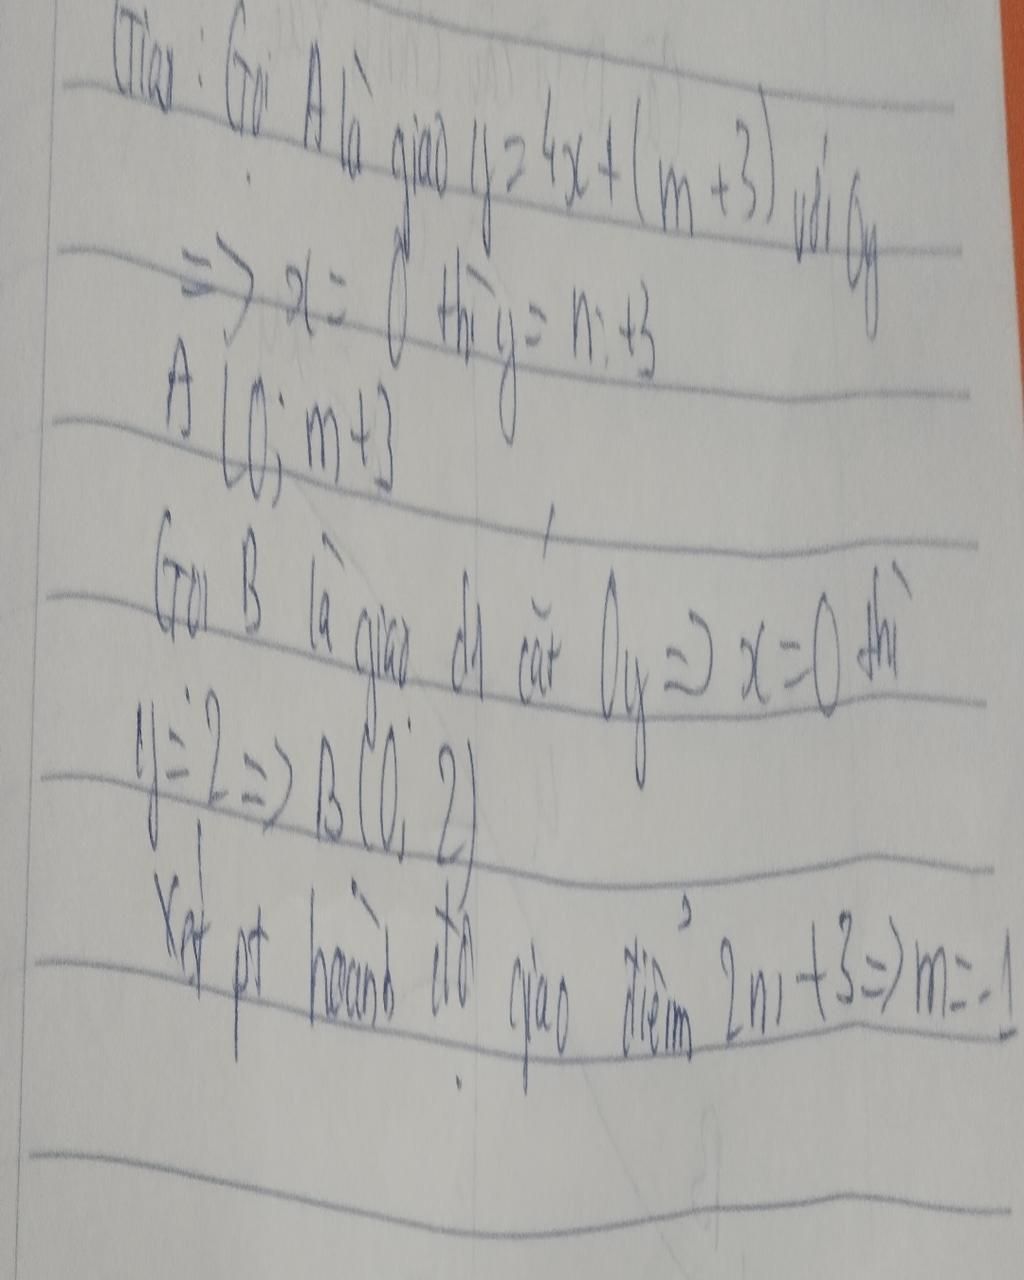 Giải : Gọi A là giao y = 4x + (m + 3) với Oy
=> x = 0 thì y = m + 3
A (0; m+3
Gọi B là giao d1 cắt Oy => x = 0 thì
y = 2 => B (0; 2)
Xét pt hoành độ giao điểm 2m + 3 => m = -1